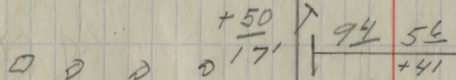 +50
171
94 54
+41